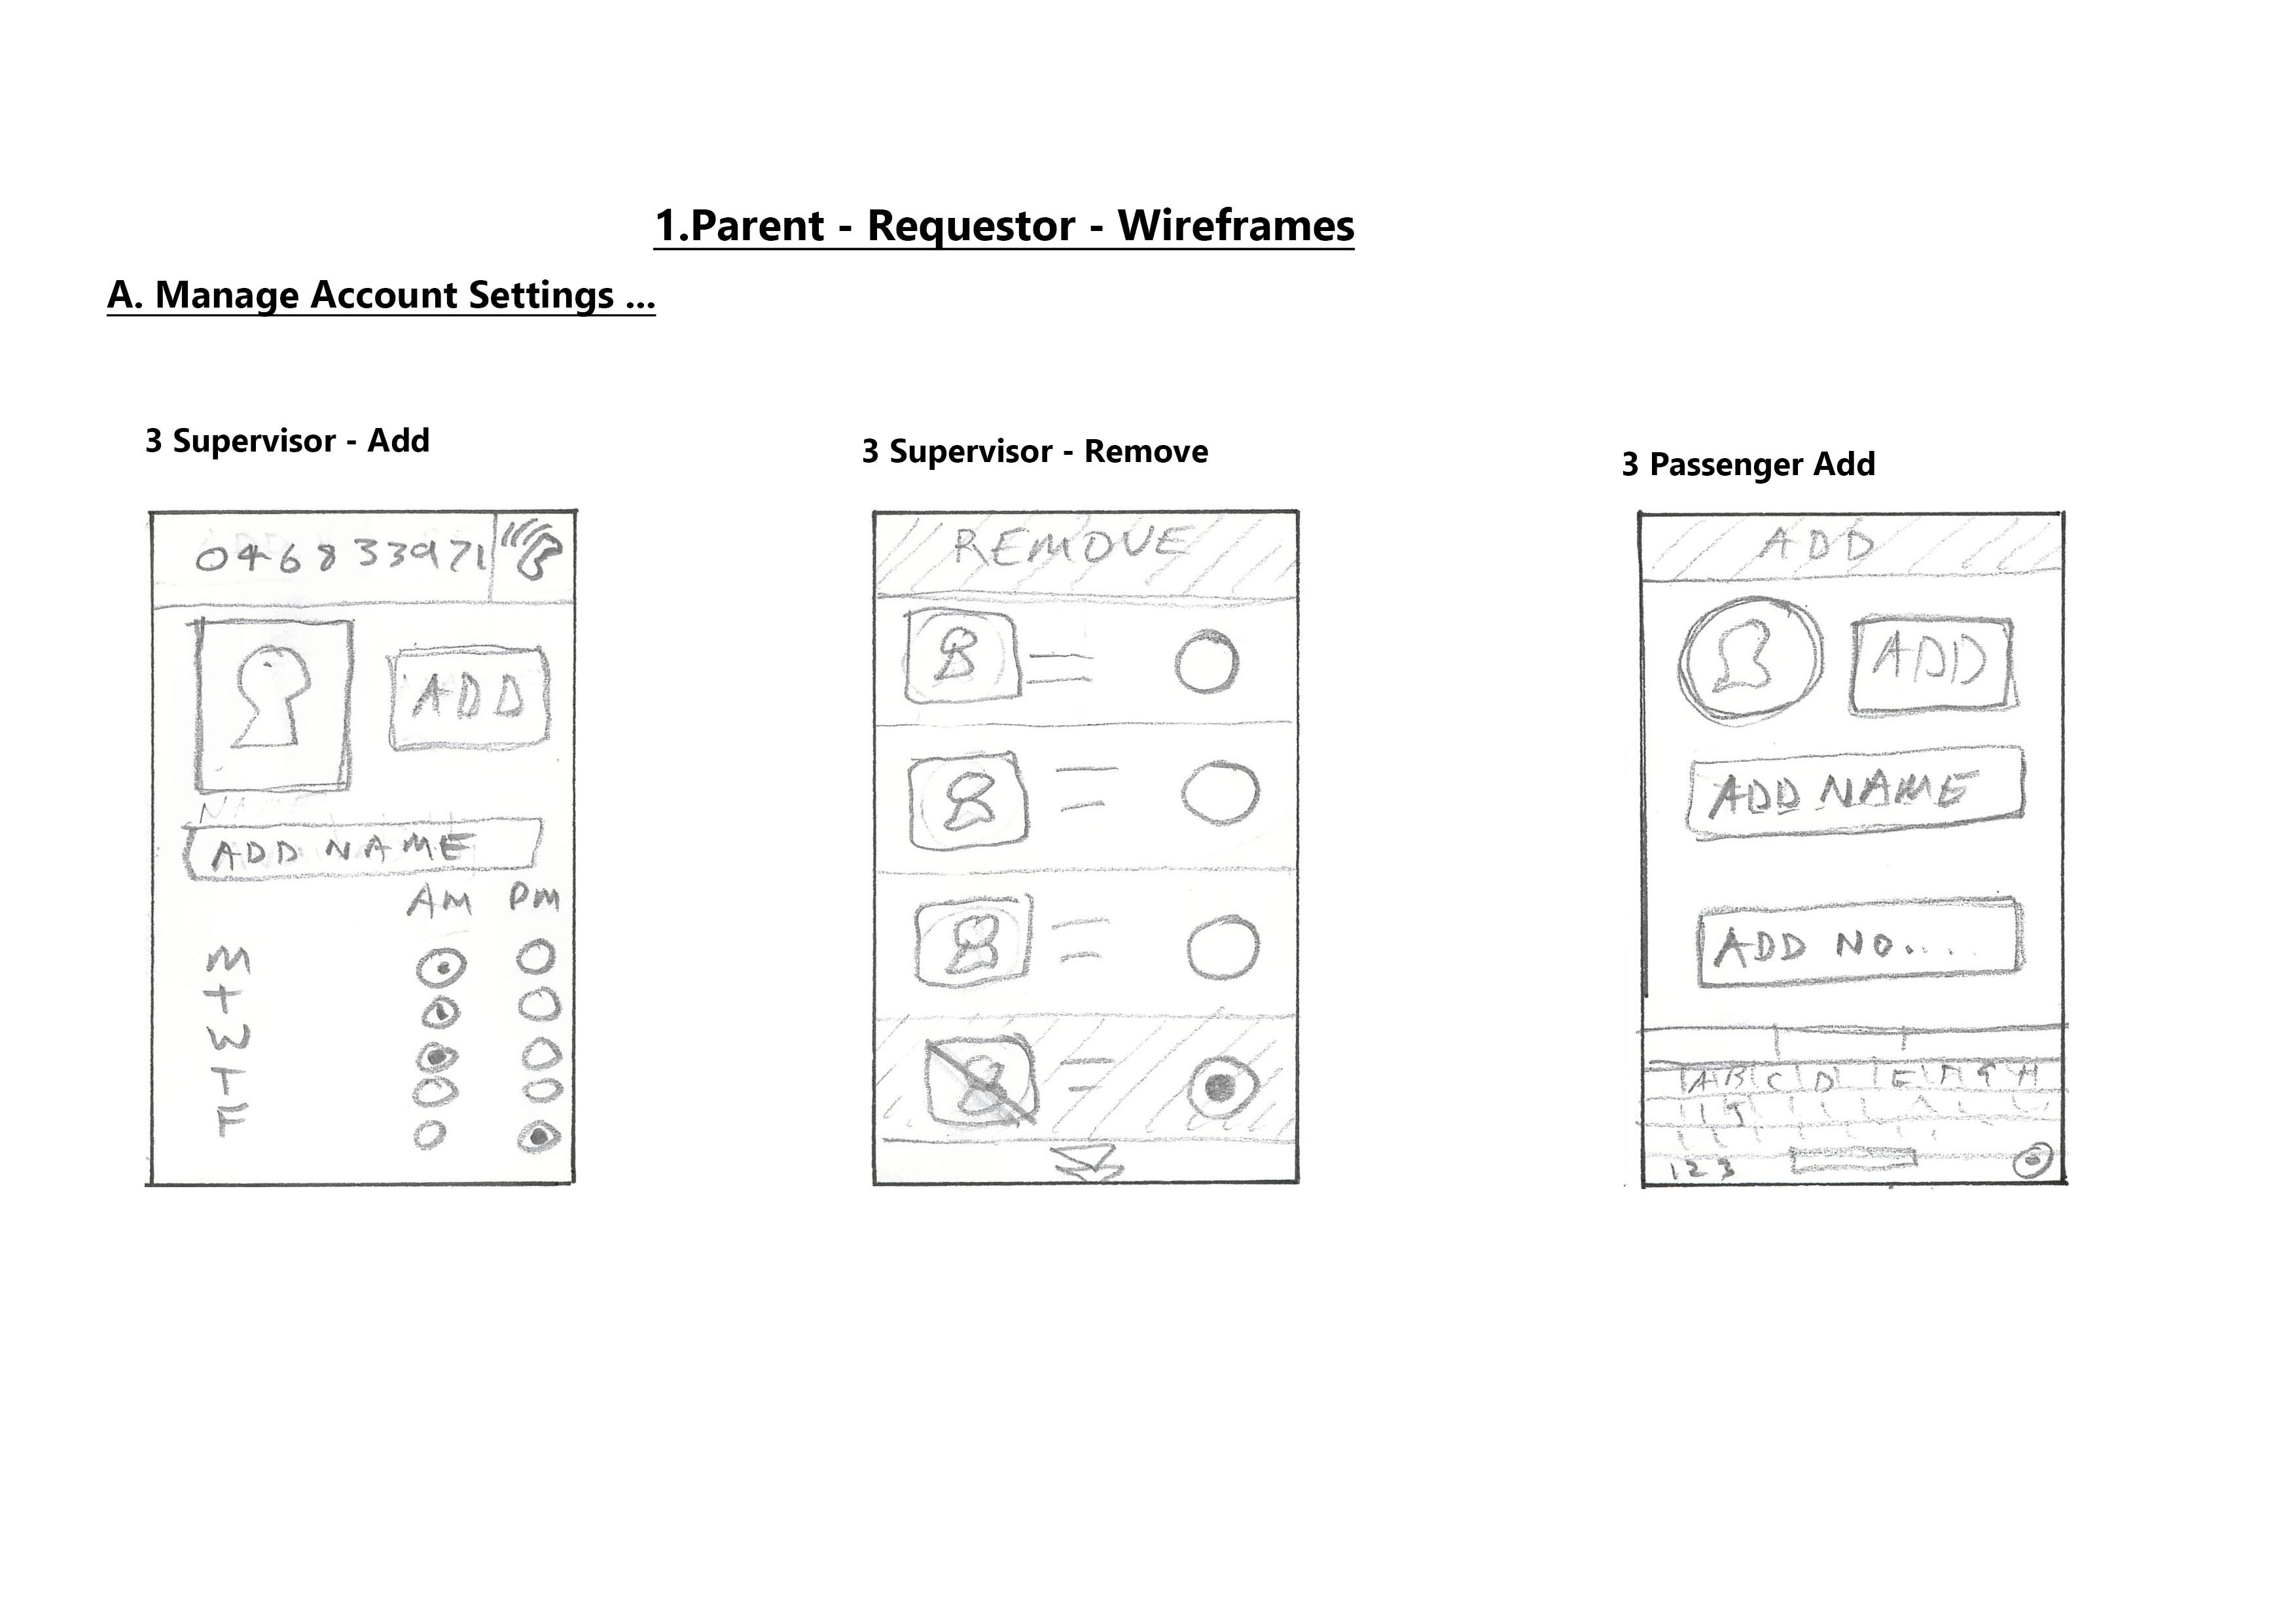 1.Parent - Requestor - Wireframes
A. Manage Account Settings ...
3 Supervisor - Add
046833971
ADD
NAME
ADD NAME
AM PM
M
T
W
T
F
3 Supervisor - Remove
REMOVE
3 Passenger Add
ADD
ADD
ADD NAME
ADD NO....
A B C D E
123